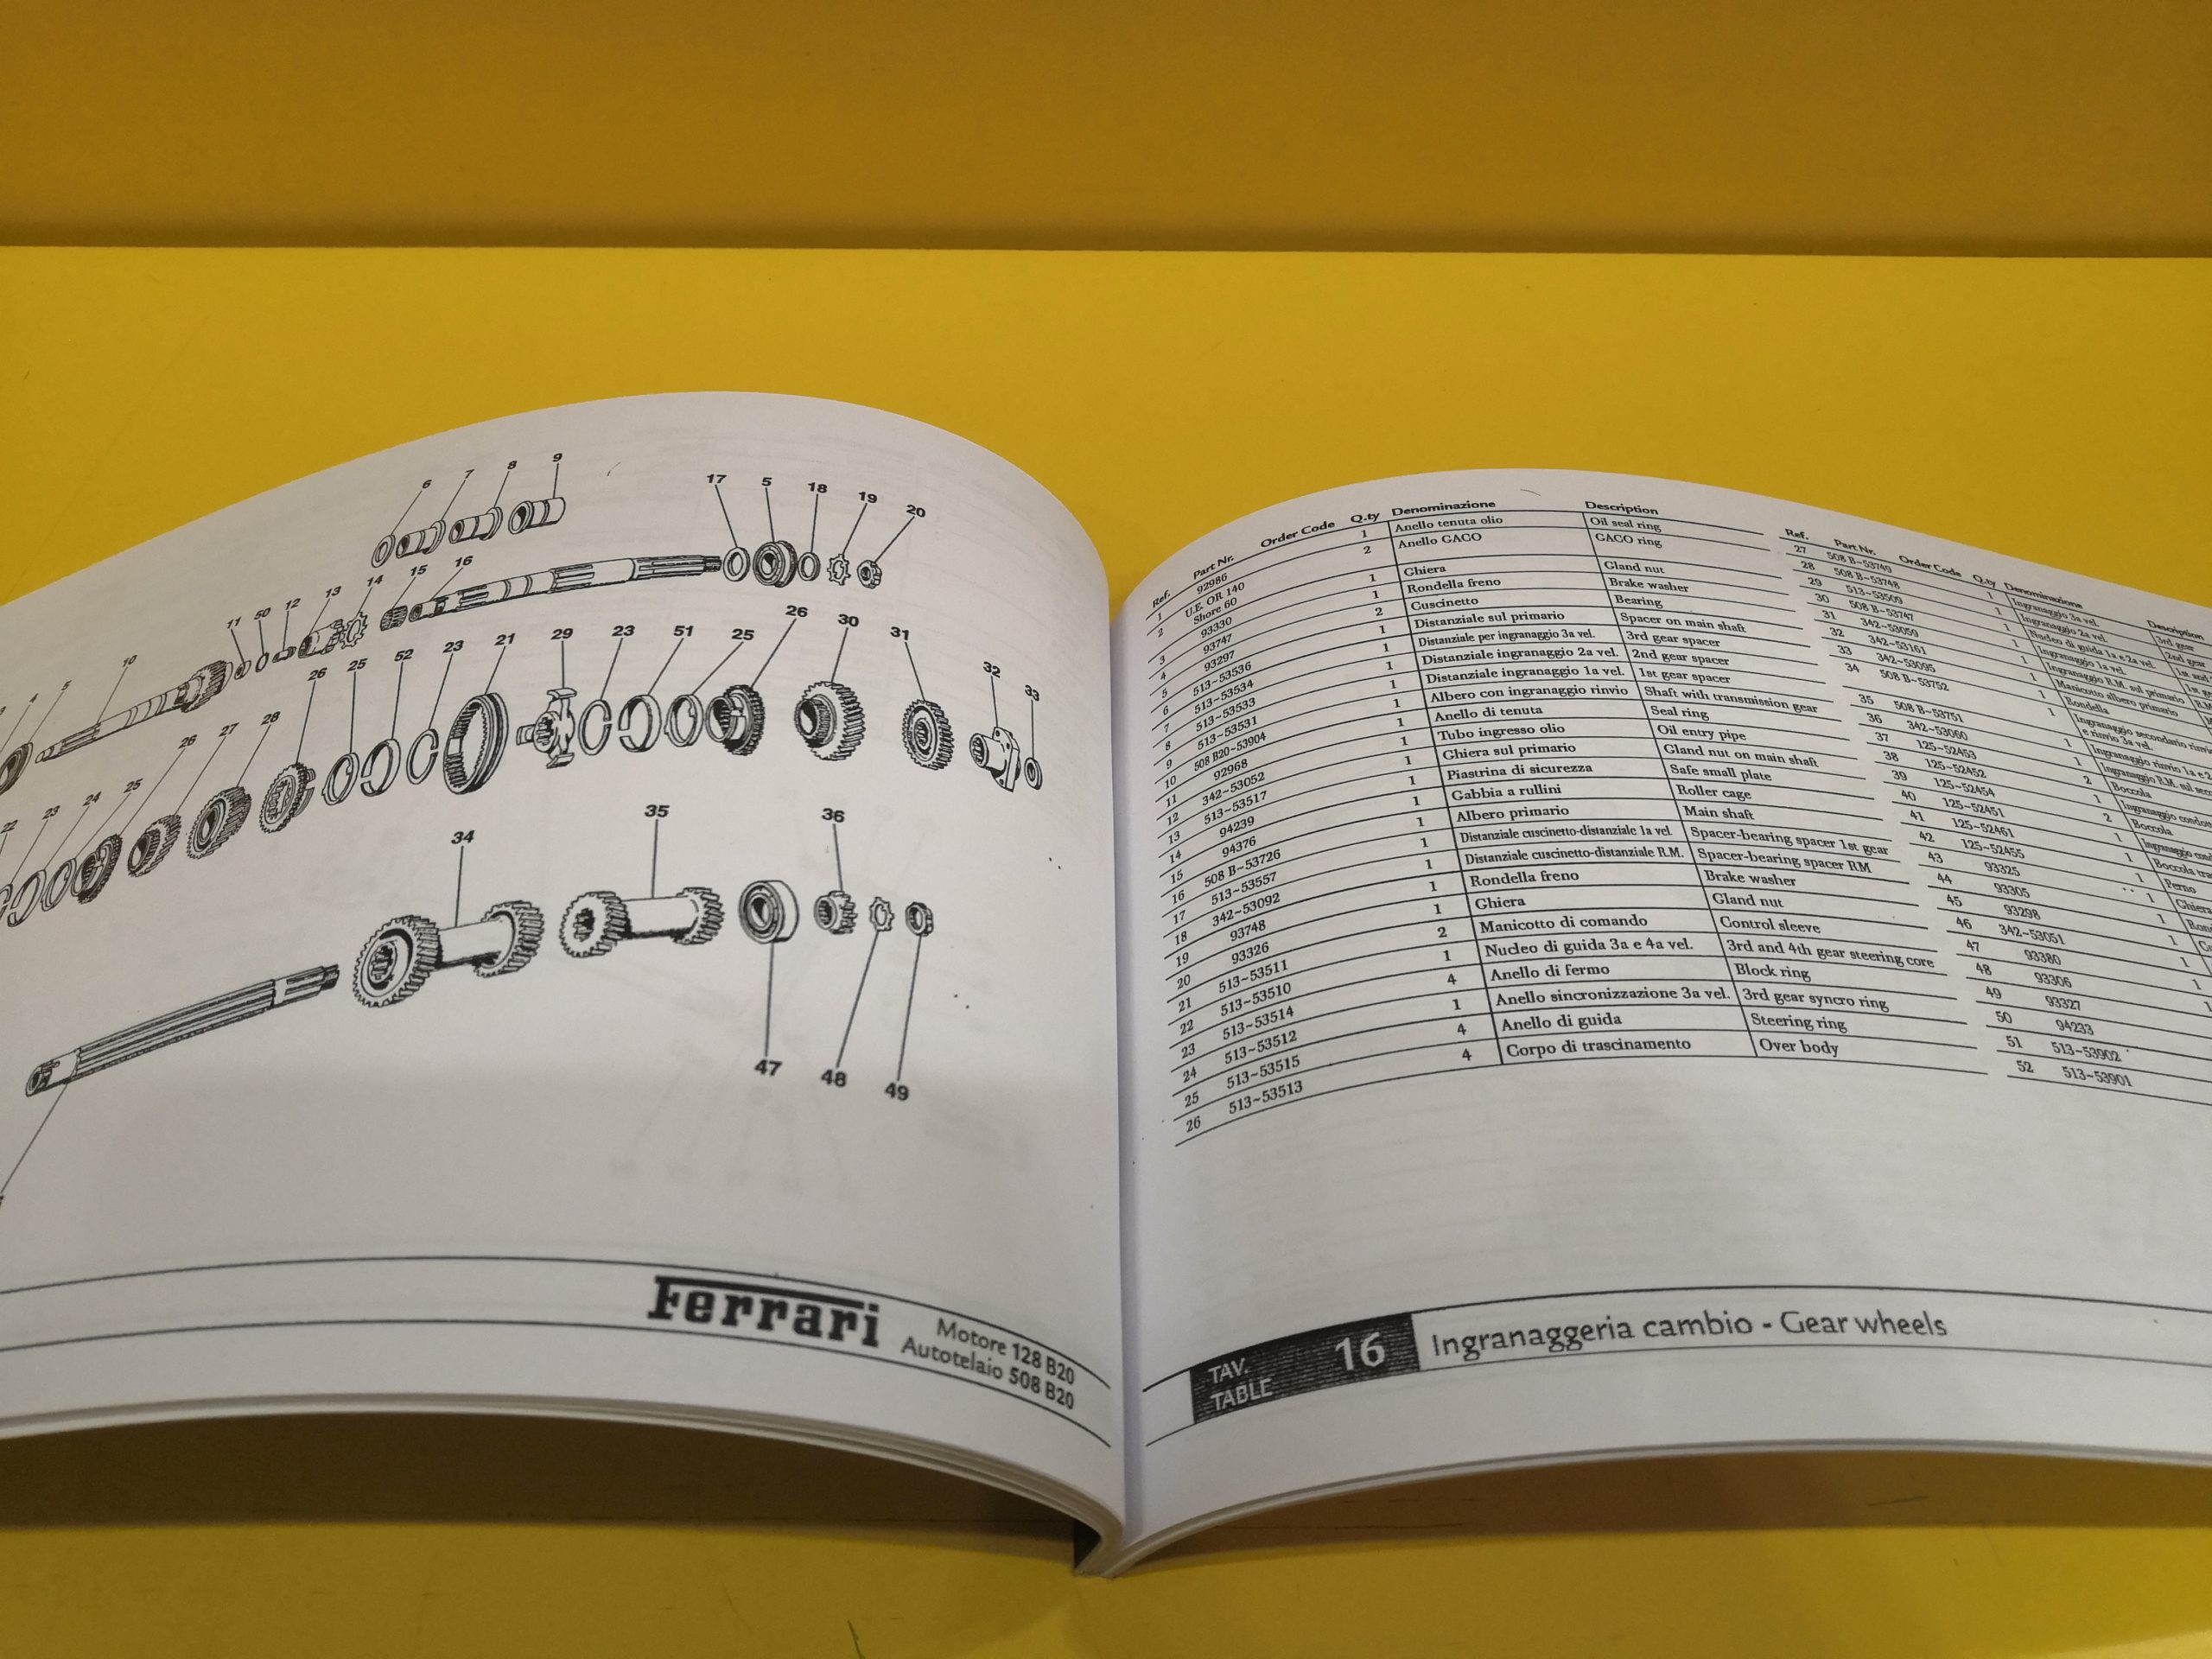 6
7
8
9
17
5
18
19
20
4
5
10
11
50
12
13
14
15
16
22
23
24
25
26
27
28
26
25
52
23
21
29
23
51
25
26
30
31
32
33
34
35
36
47
48
49
Ferrari
Motore 128 B20
Autotelaio 508 B20
Ref. Part Nr. Order Code Q.ty Denominazione Description
1 92986 1 Anello tenuta olio Oil seal ring
2 U.E. OR 140 2 Anello GACO GACO ring
Shore 60
3 93330 1 Ghiera Gland nut
4 93747 1 Rondella freno Brake washer
5 93297 2 Cuscinetto Bearing
6 513-53536 1 Distanziale sul primario Spacer on main shaft
7 513-53534 1 Distanziale per ingranaggio 3a vel. 3rd gear spacer
8 513-53533 1 Distanziale ingranaggio 2a vel. 2nd gear spacer
9 513-53531 1 Distanziale ingranaggio 1a vel. 1st gear spacer
10 508 B20-53904 1 Albero con ingranaggio rinvio Shaft with transmission gear
11 92968 1 Anello di tenuta Seal ring
12 342-53052 1 Tubo ingresso olio Oil entry pipe
13 513-53517 1 Ghiera sul primario Gland nut on main shaft
14 94239 1 Piastrina di sicurezza Safe small plate
15 94376 1 Gabbia a rullini Roller cage
16 508 B-53726 1 Albero primario Main shaft
17 513-53557 1 Distanziale cuscinetto-distanziale 1a vel. Spacer-bearing spacer 1st gear
18 342-53092 1 Distanziale cuscinetto-distanziale R.M. Spacer-bearing spacer RM
19 93748 1 Rondella freno Brake washer
20 93326 1 Ghiera Gland nut
21 513-53511 2 Manicotto di comando Control sleeve
22 513-53510 1 Nucleo di guida 3a e 4a vel. 3rd and 4th gear steering core
23 513-53514 4 Anello di fermo Block ring
24 513-53512 1 Anello sincronizzazione 3a vel. 3rd gear syncro ring
25 513-53515 4 Anello di guida Steering ring
26 513-53513 4 Corpo di trascinamento Over body
Ref. Part Nr. Order Code Q.ty Denominazione Description
27 508 B-53749 1 Ingranaggio 3a vel. 3rd gear
28 508 B-53748 1 Ingranaggio 2a vel. 2nd gear
29 513-53509 1 Nucleo di guida 1a e 2a vel. 1st and
30 508 B-53747 1 Ingranaggio 1a vel.
31 342-53059 1 Ingranaggio R.M. sul primario
32 342-53161 1 Manicotto albero primario
33 342-53095 1 Rondella
34 508 B-53752 1 Ingranaggio secondario rinvio
e rinvio 3a vel.
35 508 B-53751 1 Ingranaggio rinvio 1a e
36 342-53060 1 Ingranaggio R.M. sul
37 125-52453 2 Boccola
38 125-52452 1 Ingranaggio
39 125-52454 2 Boccola
40 125-52451 1 Ingranaggio
41 125-52461 1 Boccola
42 125-52455 1 Perno
43 93325 1 Ghiera
44 93305 1
45 93298 1
46 342-53051 1
47 93380 1
48 93306
49 93327
50 94233
51 513-53902
52 513-53901
TAV.
TABLE
16
Ingranaggeria cambio - Gear wheels